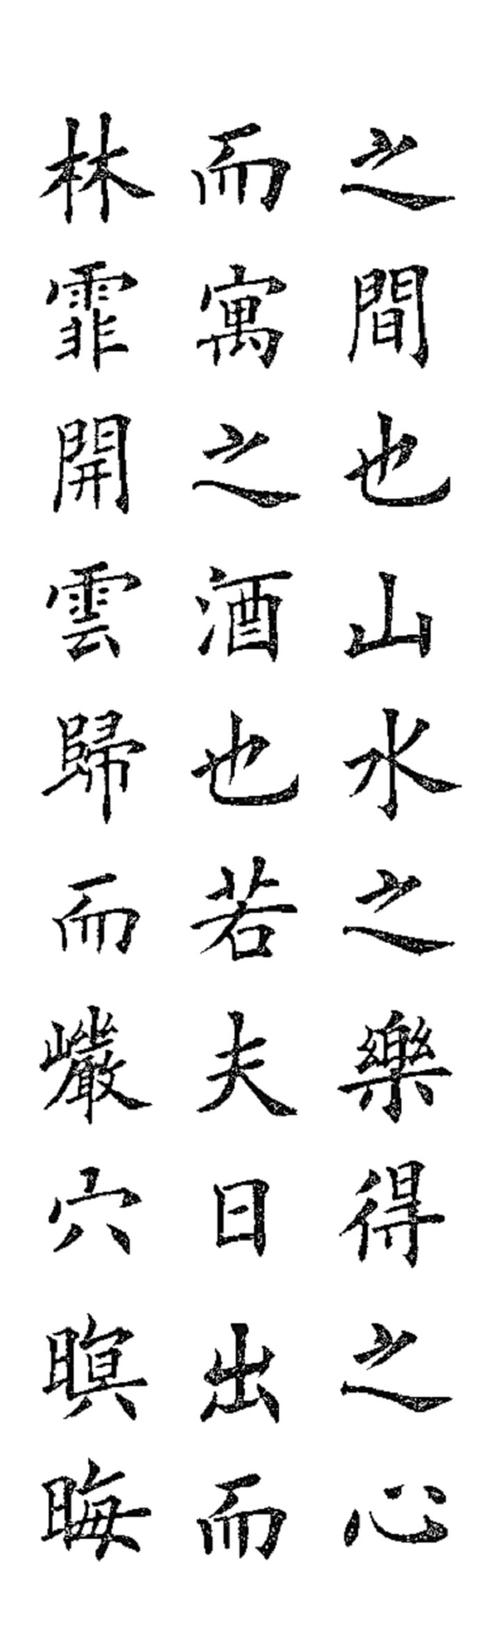 之間也山水之樂得之心
而寓之酒也若夫日出而
林霏開雲歸而巖穴暝晦